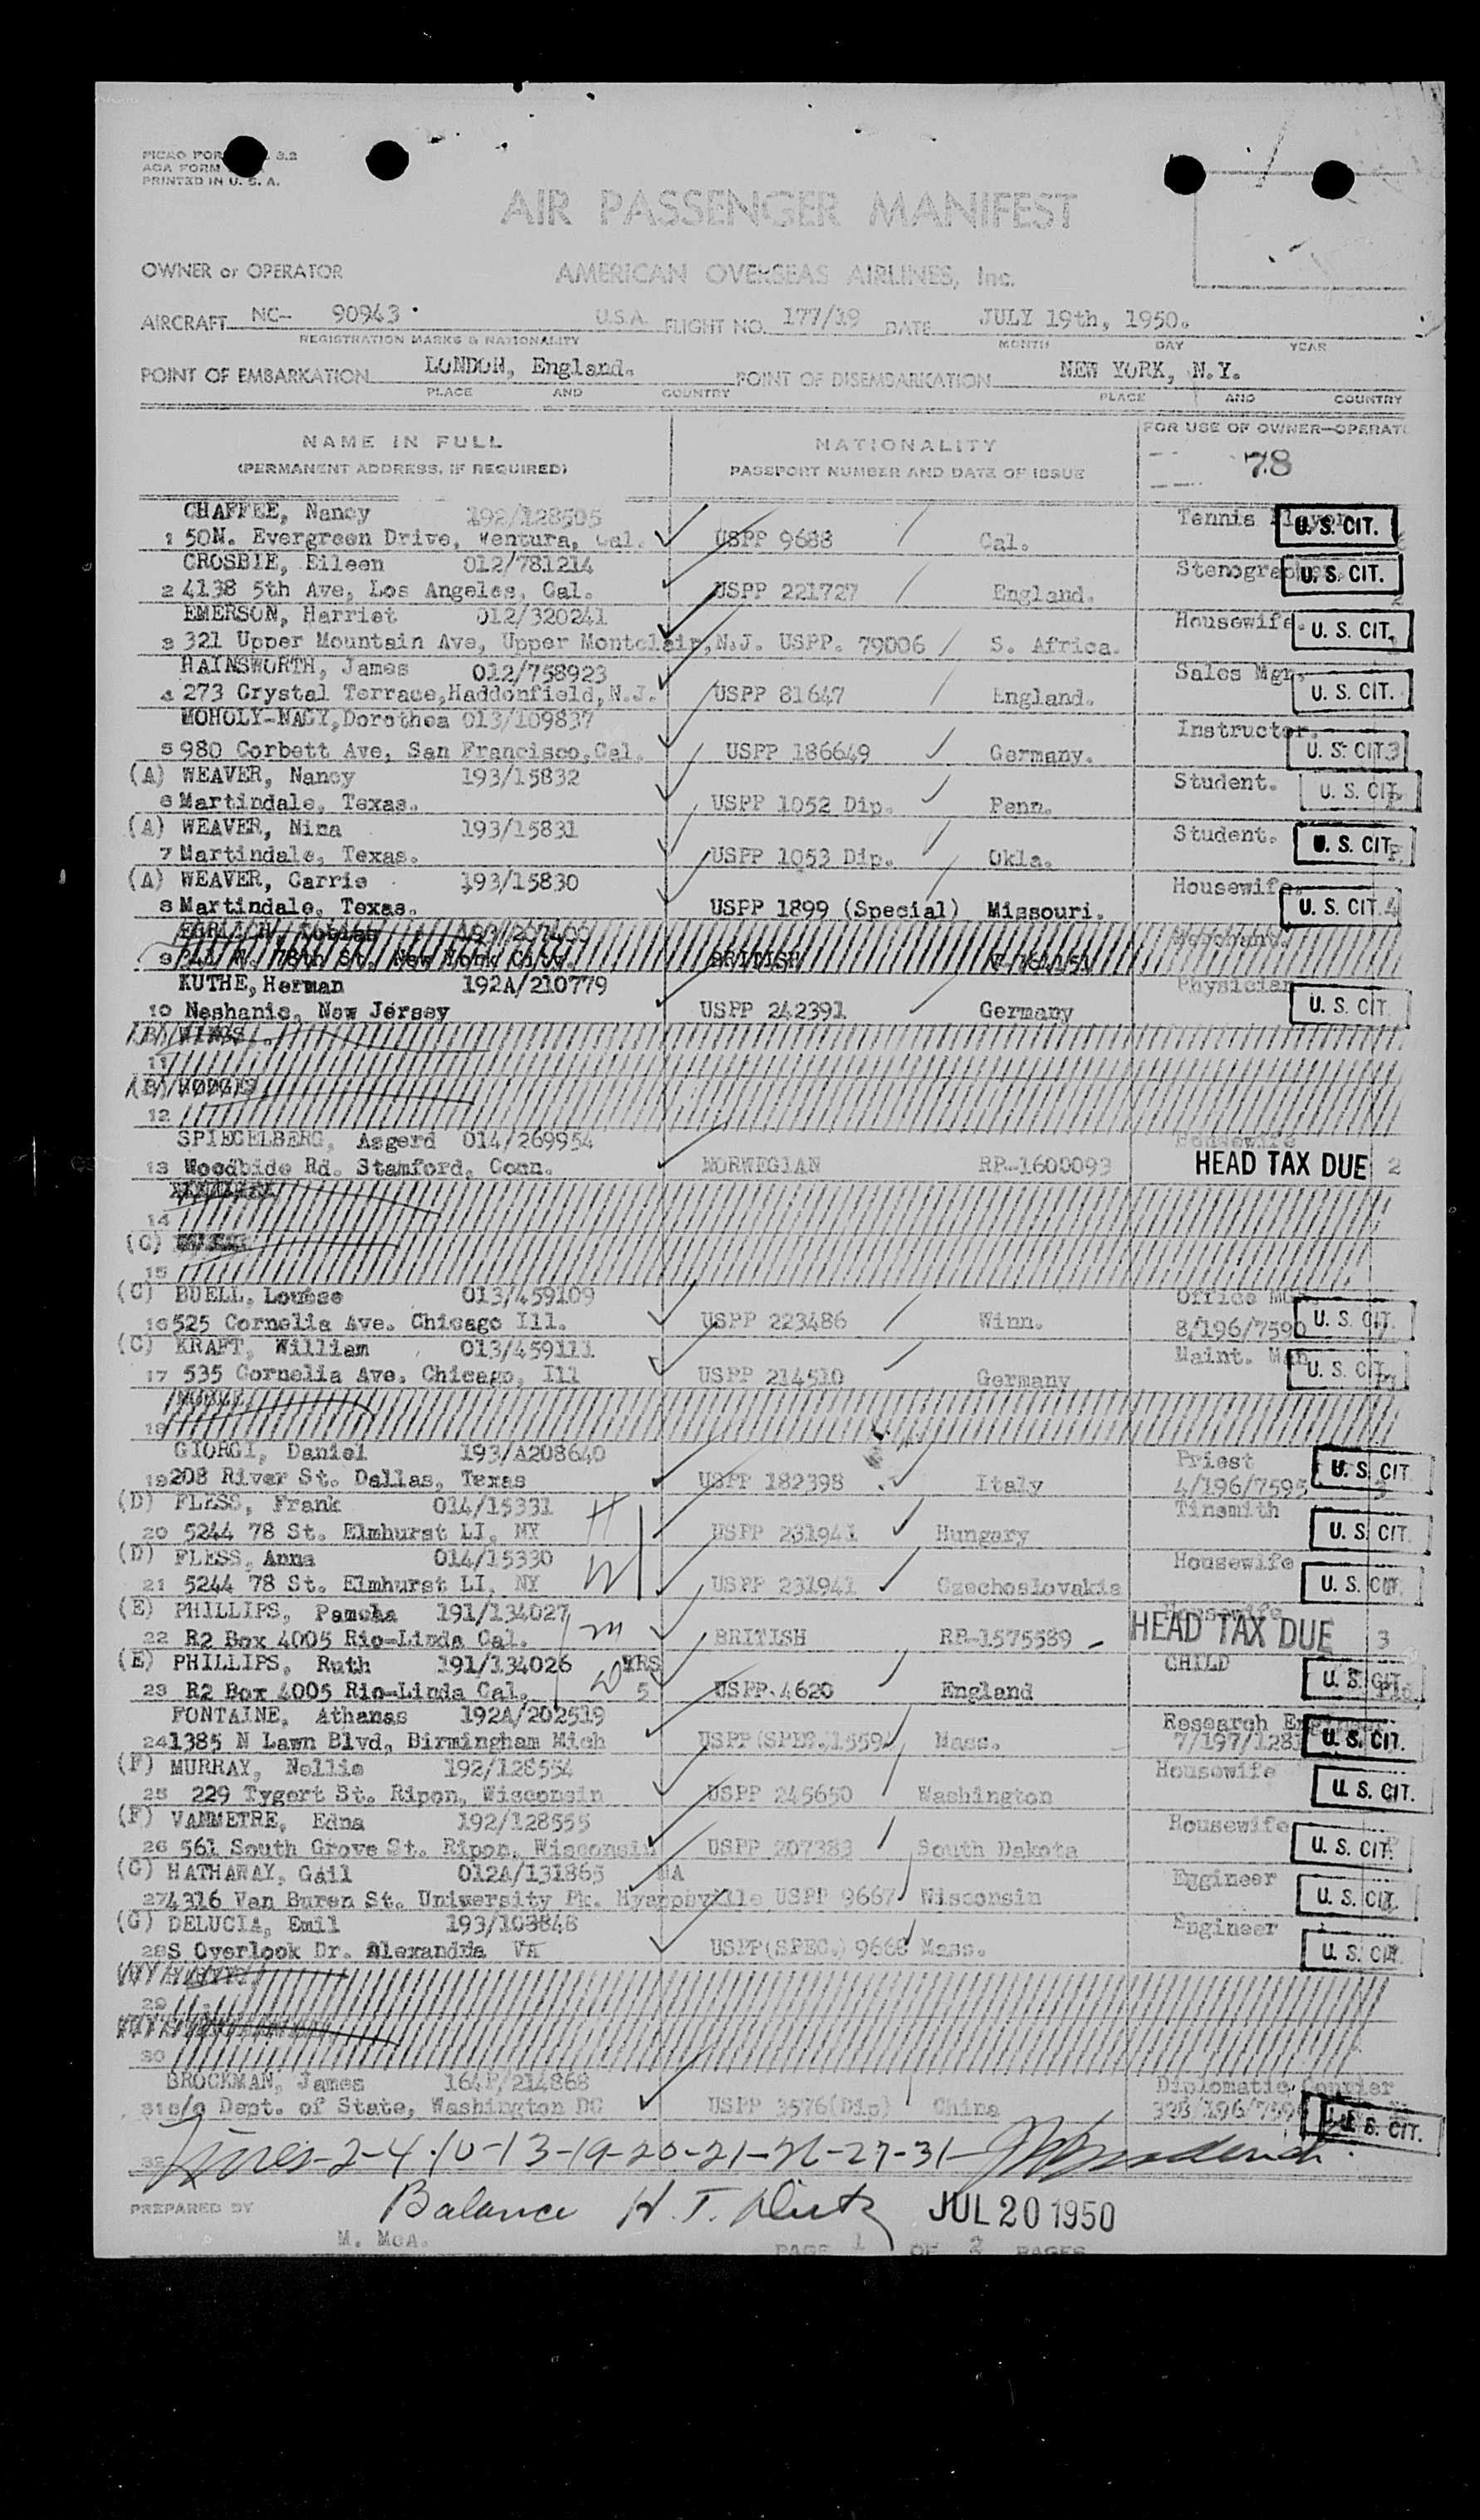 PICAO FOR 3.2
AOA FORM
PRINTED IN U. S. A.
AIR PASSENGER MANIFEST
OWNER or OPERATOR AMERICAN OVERSEAS AIRLINES, Inc.
AIRCRAFT NC- 90943 U.S.A. FLIGHT NO. 177/19 DATE JULY 19th, 1950.
REGISTRATION MARKS & NATIONALITY MONTH DAY YEAR
POINT OF EMBARKATION LONDON, England. POINT OF DISEMBARKATION NEW YORK, N.Y.
PLACE AND COUNTRY PLACE AND COUNTRY
NAME IN FULL NATIONALITY FOR USE OF OWNER-OPERAT
(PERMANENT ADDRESS, IF REQUIRED) PASSPORT NUMBER AND DATE OF ISSUE 78
CHAFFEE, Nancy 192/128505 Tennis Player U. S. CIT.
1 50N. Evergreen Drive, Ventura, Cal. USPP 9688 Cal.
CROSBIE, Eileen 012/781214 Stenographer U. S. CIT.
2 4138 5th Ave, Los Angeles, Cal. USPP 221727 England.
EMERSON, Harriet 012/320241 Housewife. U. S. CIT.
3 321 Upper Mountain Ave, Upper Montclair, N.J. USPP. 79006 S. Africa.
HAINSWORTH, James 012/758923 Sales Mgr. U. S. CIT.
4 273 Crystal Terrace, Haddonfield, N.J. USPP 81647 England.
MOHOLY-NAGY, Dorothea 013/109837 Instructor.
5 980 Corbett Ave, San Francisco, Cal. USPP 186649 Germany. U. S. CIT 3
(A) WEAVER, Nancy 193/15832 Student. U. S. CIT.
6 Martindale, Texas. USPP 1052 Dip. Penn.
(A) WEAVER, Nina 193/15831 Student. U. S. CIT
7 Martindale, Texas. USPP 1053 Dip. Okla.
(A) WEAVER, Carrie 193/15830 Housewife.
8 Martindale, Texas. USPP 1899 (Special) Missouri. U. S. CIT. 4
9 78th St. New York City. BRITISH
KUTHE, Herman 192A/210779 Physician
10 Neshanic, New Jersey USPP 242391 Germany U. S. CIT
11
12
SPIEGELBERG, Asgerd 014/269954 Housewife
13 Woodbide Rd. Stamford, Conn. NORWEGIAN RP-1600093 HEAD TAX DUE 2
14
(C)
15
(C) BUELL, Louise 013/459109 Office MGR.
16 525 Cornelia Ave. Chicago Ill. USPP 223486 Winn. 8/196/7590 U. S. CIT.
(C) KRAFT, William 013/459111 Maint. Man
17 535 Cornelia Ave. Chicago, Ill USPP 214510 Germany U. S. CIT
18
GIORGI, Daniel 193/A208640 Priest U. S. CIT.
19 208 River St. Dallas, Texas USPP 182398 Italy 4/196/7595 3
(D) FLESS, Frank 014/15331 H Tinsmith
20 5244 78 St. Elmhurst LI, NY USPP 231941 Hungary U. S. CIT.
(D) FLESS, Anna 014/15330 W Housewife
21 5244 78 St. Elmhurst LI, NY USPP 231941 Czechoslovakia U. S. CIT.
(E) PHILLIPS, Pamela 191/134027 m Housewife
22 R2 Box 4005 Rio-Linda Cal. BRITISH RP-1575589 HEAD TAX DUE 3
(E) PHILLIPS, Ruth 191/134026 YRS CHILD
23 R2 Box 4005 Rio-Linda Cal. 5 USPP.4620 England U. S. CIT
FONTAINE, Athanas 192A/202519 Research Engineer
24 1385 N Lawn Blvd, Birmingham Mich USPP(SPEC.)1559 Mass. U. S. CIT.
(F) MURRAY, Nellie 192/128554 Housewife
25 229 Tygert St. Ripon, Wisconsin USPP 245650 Washington U. S. CIT.
(F) VANMETRE, Edna 192/128555 Housewife
26 561 South Grove St. Ripon, Wisconsin USPP 207383 South Dakota U. S. CIT.
(G) HATHAWAY, Gail 012A/131865 NA Engineer
27 4316 Van Buren St. University Pk. Hyattsville USPP 9667 Wisconsin U. S. CIT.
(G) DELUCIA, Emil 193/108848 Engineer
28 S Overlook Dr. Alexandria VA USPP(SPEC.) 9668 Mass. U. S. CIT.
29
30
BROCKMAN, James 164P/214868 Diplomatic Courier
31 c/o Dept. of State, Washington DC USPP 3576(Dip) China U. S. CIT.
32 Lines-2-4-10-13-19-20-21-26-27-31-
PREPARED BY Balance H. T. JUL 20 1950
M. McA. PAGE 1 OF 2 PAGES